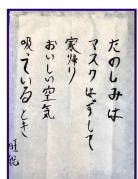 たのしみは
マスクはずして
家帰り
おいしい空気
吸っているとき